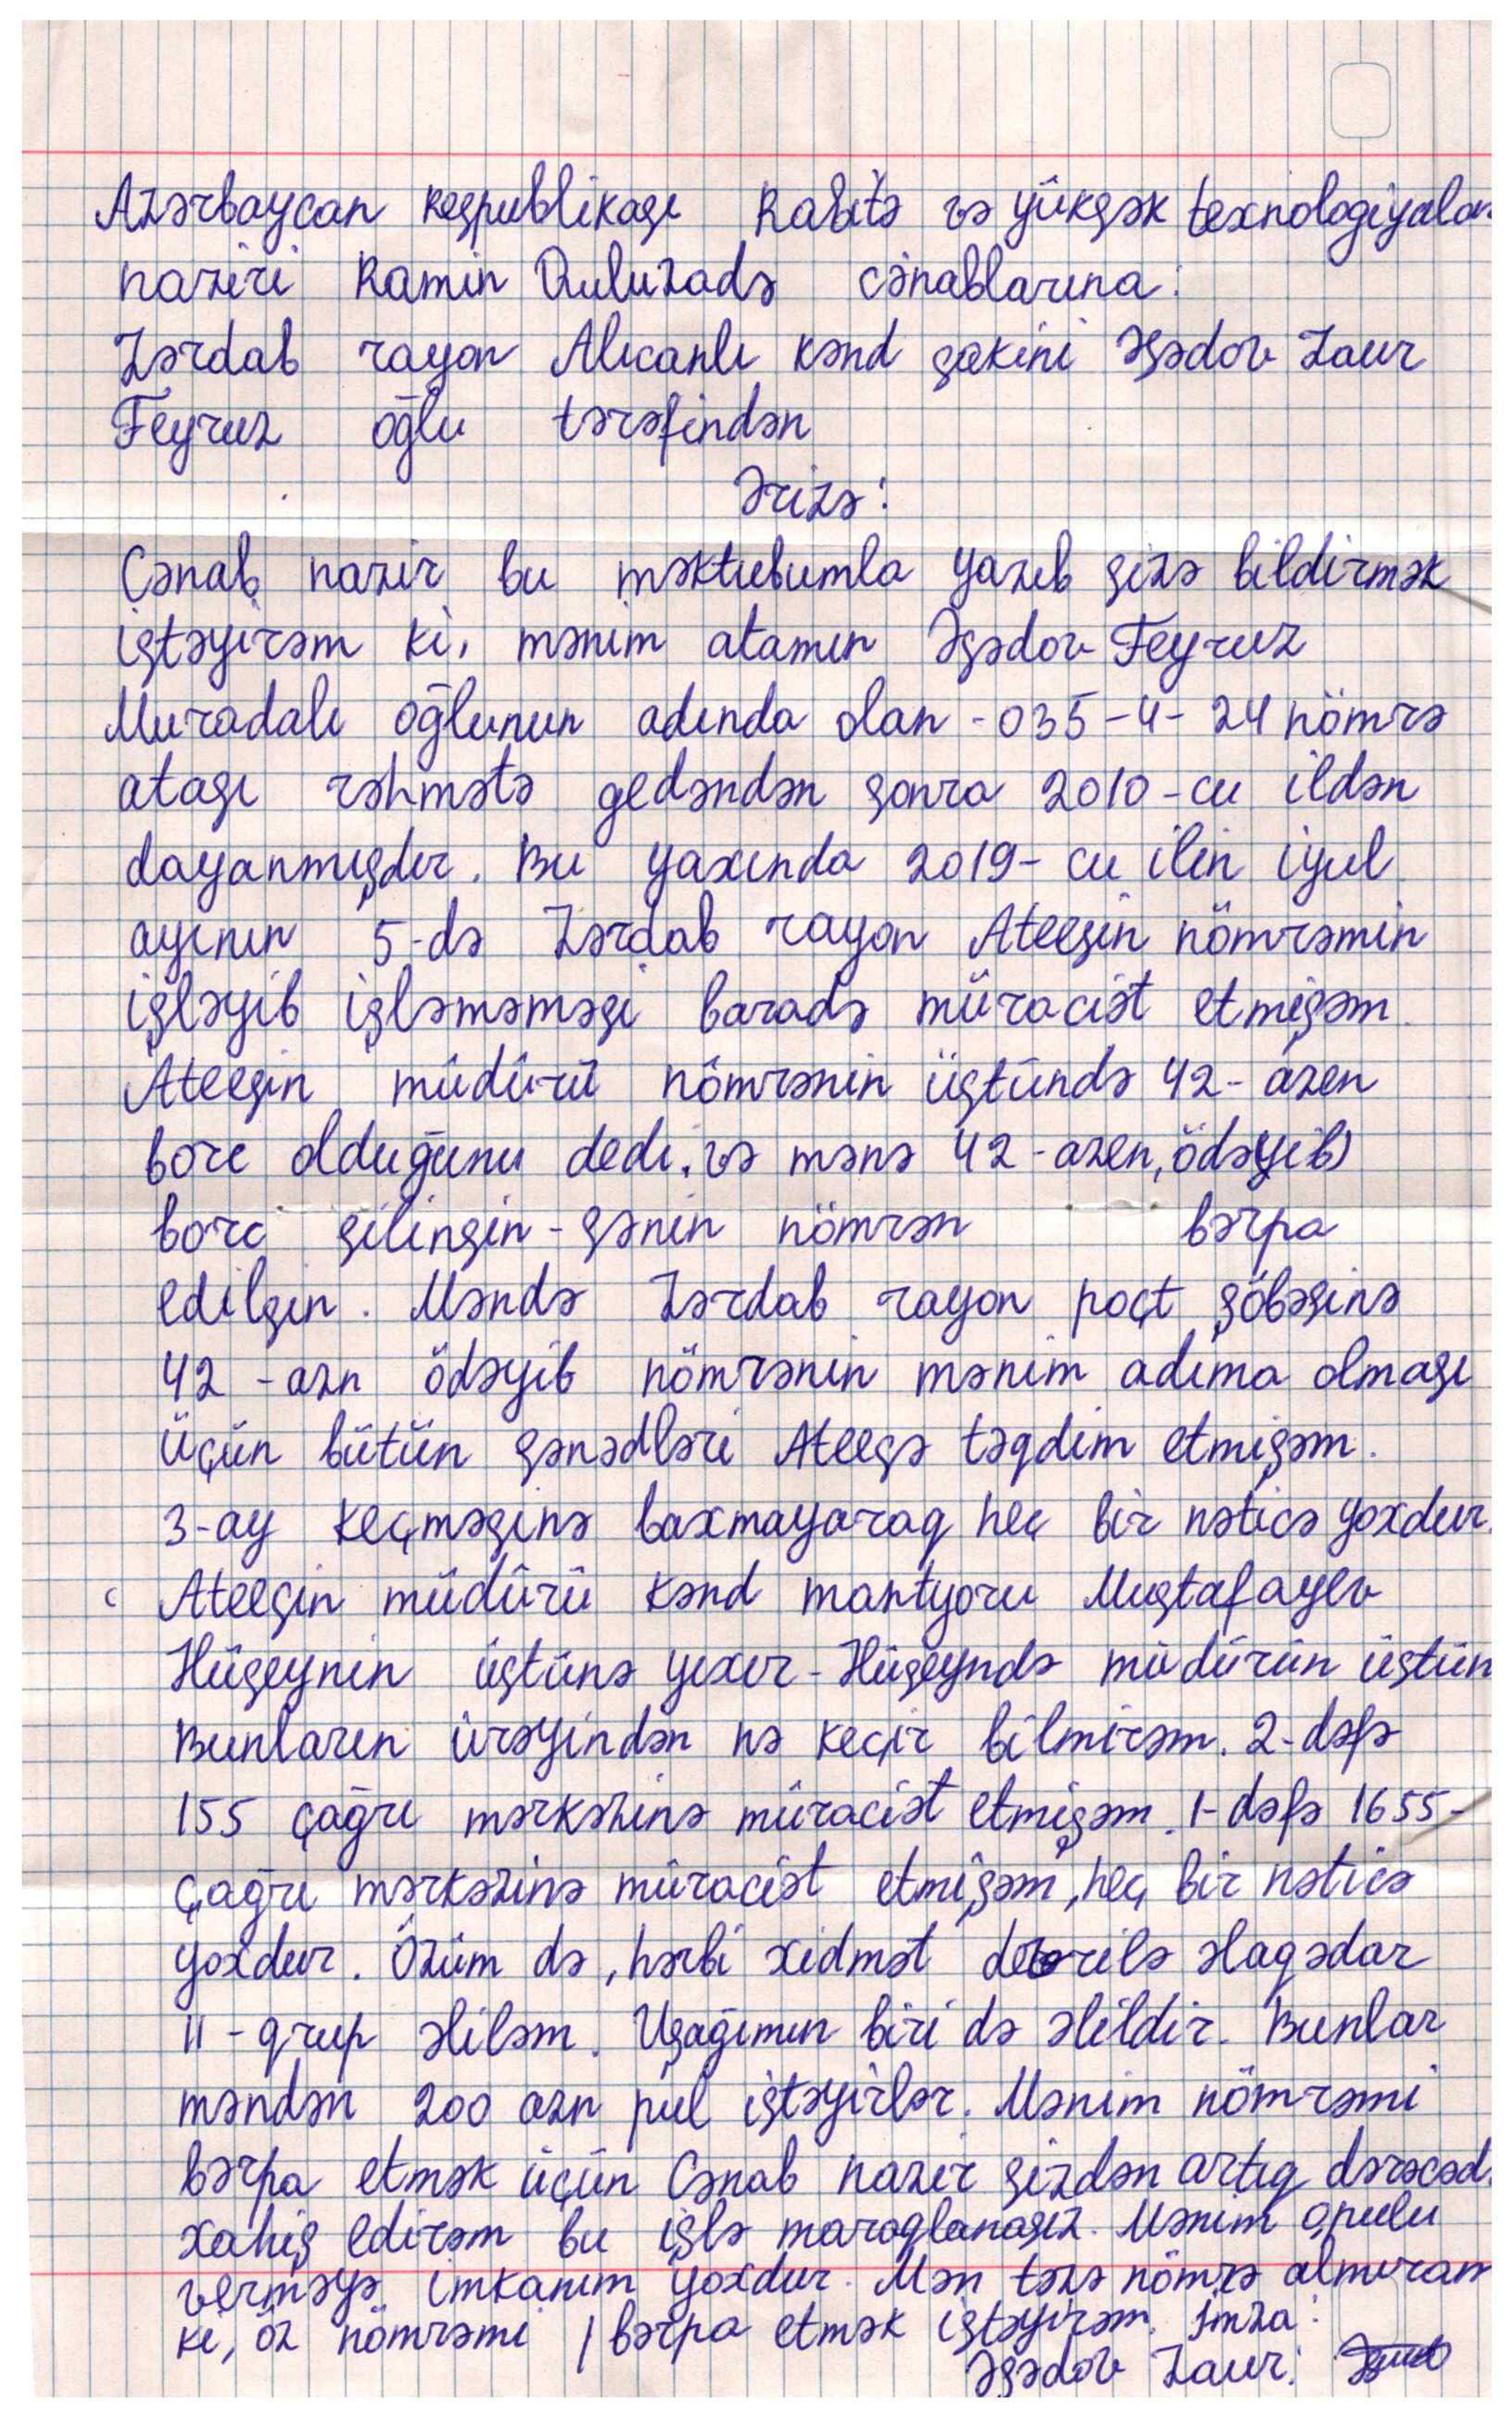 Azərbaycan Respublikası Rabitə və yüksək texnologiyalar
naziri Ramin Quluzadə cənablarına:
Zərdab rayon Alıcanlı kənd sakini Əsədov Zaur
Feyruz oğlu tərəfindən
Ərizə:
Cənab nazir bu məktubumla yazıb sizə bildirmək
istəyirəm ki, mənim atamın Əsədov Feyruz
Muradalı oğlunun adında olan -035-4-24 nömrə
atası rəhmətə gedəndən sonra 2010-cu ildən
dayanmışdır. Bu yaxında 2019-cu ilin iyul
ayının 5-də Zərdab rayon Ateesin nömrəmin
işləyib işləməməsi barədə müraciət etmişəm.
Ateesin müdürü nömrənin üstündə 42-azen
borc olduğunu dedi. və mənə 42-azen, ödəyib
borc silinsin - sənin nömrən bərpa
edilsin. Məndə Zərdab rayon poçt şöbəsinə
42-azn ödəyib nömrənin mənim adıma olması
üçün bütün sənədləri Ateesə təqdim etmişəm.
3-ay keçməsinə baxmayaraq heç bir nəticə yoxdur.
Ateesin müdürü kənd mantyoru Mustafayev
Hüseynin üstünə yıxır - Hüseyndə müdürün üstün
Bunların ürəyindən nə keçir bilmirəm. 2-dəfə
155 çağrı mərkəzinə müraciət etmişəm. 1-dəfə 1655-
çağrı mərkəzinə müraciət etmişəm, heç bir nəticə
yoxdur. Özüm də, hərbi xidmət əlaqədar
II-qrup əliləm. Uşağımın biri də əlildir. Bunlar
məndən 200 azn pul istəyirlər. Mənim nömrəmi
bərpa etmək üçün Cənab nazir sizdən artıq dərəcəd
xahiş edirəm bu işlə maraqlanasız. Mənim o pulu
verməyə imkanım yoxdur. Mən təzə nömrə almıram
ki, öz nömrəmi bərpa etmək istəyirəm. İmza:
Əsədov Zaur: